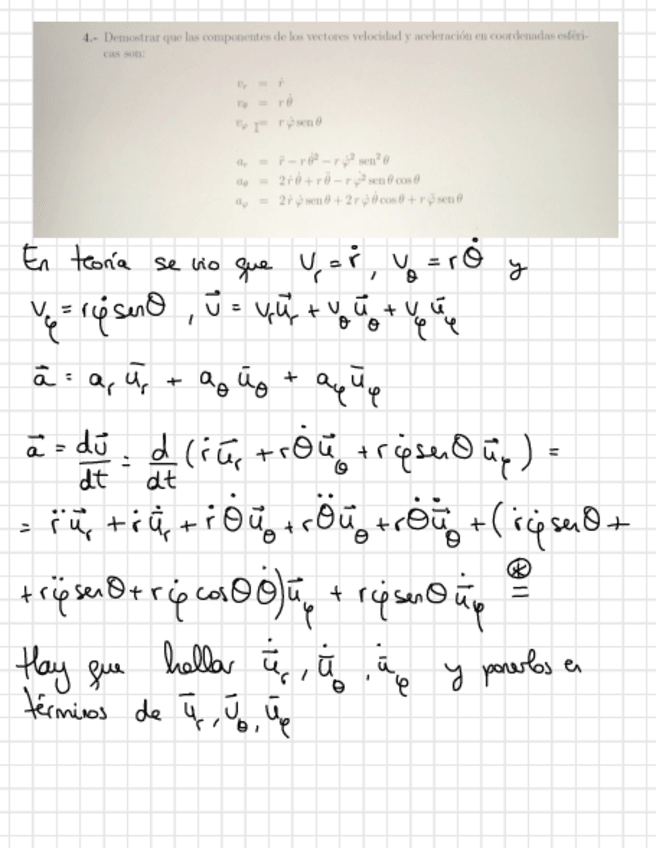 4.- Demostrar que las componentes de los vectores velocidad y aceleración en coordenadas esféri-
cas son:
v_r = ṙ
v_θ = r θ̇
v_φ = r φ̇ sen θ
a_r = r̈ − r θ̇² − r φ̇² sen² θ
a_θ = 2 ṙ θ̇ + r θ̈ − r φ̇² sen θ cos θ
a_φ = 2 ṙ φ̇ sen θ + 2 r φ̇ θ̇ cos θ + r φ̈ sen θ
En teoría se vio que V_r = ṙ, V_θ = r θ̇ y
V_φ = r φ̇ sen θ, v⃗ = V_r u⃗_r + V_θ u⃗_θ + V_φ u⃗_φ
a⃗ = a_r u⃗_r + a_θ u⃗_θ + a_φ u⃗_φ
a⃗ = dv⃗/dt = d/dt (ṙ u⃗_r + r θ̇ u⃗_θ + r φ̇ sen θ u⃗_φ) =
= r̈ u⃗_r + ṙ u⃗̇_r + ṙ θ̇ u⃗_θ + r θ̈ u⃗_θ + r θ̇ u⃗̇_θ + (ṙ φ̇ sen θ +
+ r φ̈ sen θ + r φ̇ cos θ θ̇) u⃗_φ + r φ̇ sen θ u⃗̇_φ =^⊛
Hay que hallar u⃗̇_r, u⃗̇_θ, u⃗̇_φ y ponerlos en
términos de u⃗_r, u⃗_θ, u⃗_φ